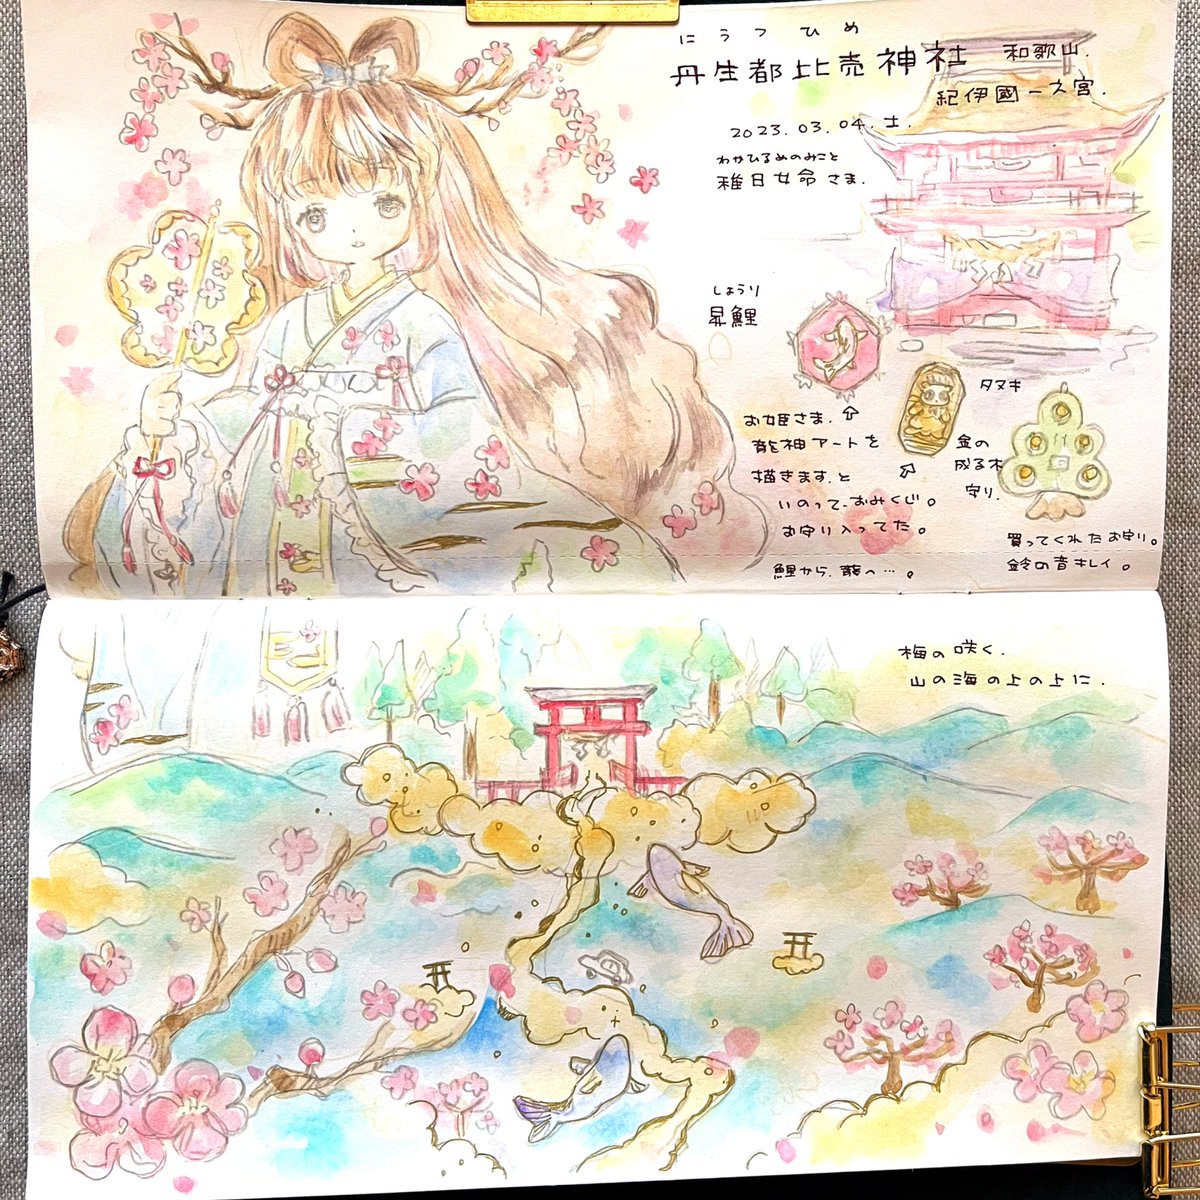 にうつひめ
丹生都比売神社 和歌山.
紀伊國一之宮.
2023.03.04.土.
わかひるめのみこと
稚日女命さま.
しょうり
昇鯉
お姫さま.
龍神アートを
描きます.と
いのって.おみくじ。
お守り入ってた。
鯉から.龍へ…。
タヌキ
金の
成る木
守り.
買ってくれたお守り。
鈴の音キレイ。
梅の咲く.
山の海の上の上に.